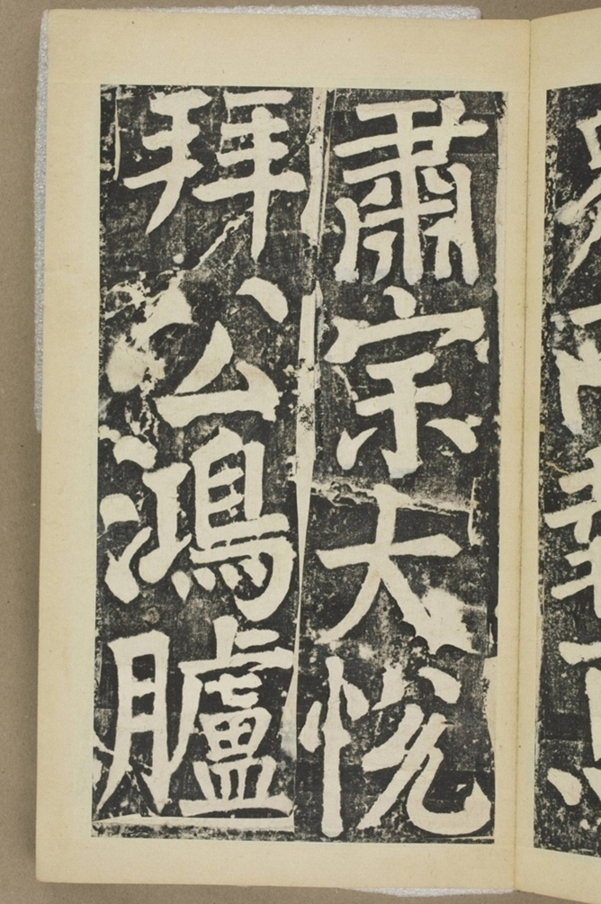 肅宗大悅
拜公鴻臚